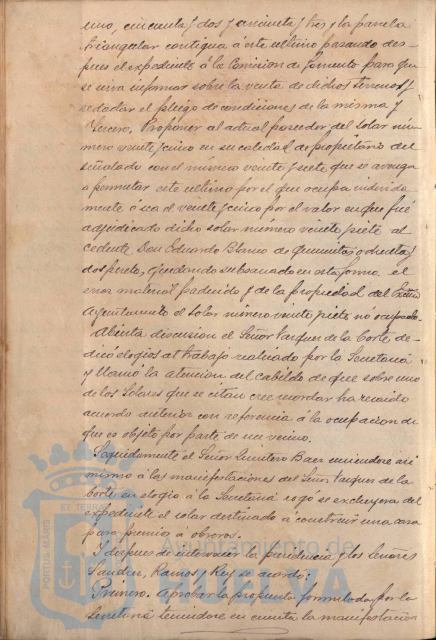 uno, cincuenta y dos y cincuenta y tres y la parcela
triangular contigua á este ultimo pasando des-
pues el expediente á la Comision de fomento para que
se sirva informar sobre la venta de dichos terrenos y
redactar el pliego de condiciones de la misma y
Tercero. Proponer al actual poseedor del solar nú-
mero veinte y cinco en su calidad de propietario del
señalado con el número veinte y siete que se avenga
a permutar este ultimo por el que ocupa indevida
mente ó sea el veinte y cinco por el valor en que fué
adjudicado dicho solar número veinte y siete al
cedente Don Eduardo Blanco de quinientas ochenta y
dos pesetas, quedando subsanado en esta forma el
error material padecido y de la propiedad del Exmo
Ayuntamiento el solar número veinte y siete no ocupado.
Abierta discusion el Señor Vazquez de la Corte de-
dicó elogios al trabajo realizado por la Secretaría
y llamó la atencion del cabildo de que sobre uno
de los Solares que se citan cree recordar ha recaido
acuerdo anterior con referencia á la ocupacion de
que es objeto por parte de un vecino.
Seguidamente el Señor Quintero Baez uniendose asi
mismo á las manifestaciones del Señor Vazquez de la
Corte en elogio á la Secretaría rogó se excluyera del
expediente el solar destinado á construir una casa
para premio a obreros.
Y despues de intervenir la presidencia y los Señores
Sanchez, Ramos y Rey se acordó:
Primero. Aprobar la propuesta formulada por la
Secretaría teniendose en cuenta la manifestacion
Ayuntamiento de
HUELVA
PORTUS MARIS
ET TERRAE